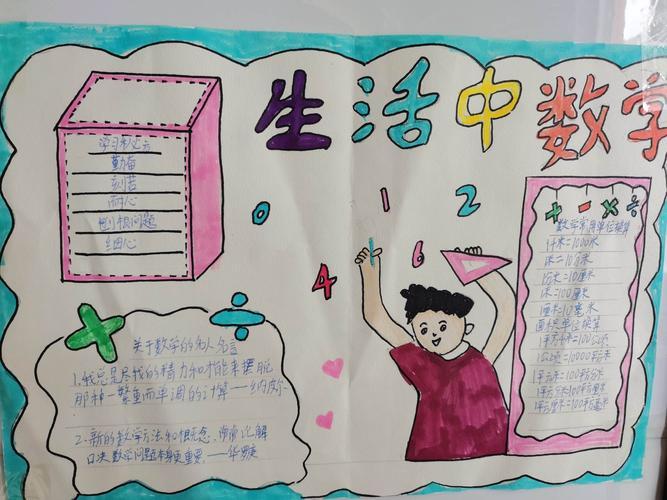 生活中数学
学习
勤奋
刻苦
耐心
刨根问题
细心
0
1
2
4
6
+ - × ÷
数学常用单位换算
1千米=1000米
1米=10分米
1分米=10厘米
1米=100厘米
1厘米=10毫米
面积单位换算
1平方千米=100公顷
1公顷=10000平方米
1平方米=100平方分米
1平方分米=100平方厘米
1平方厘米=100平方毫米
关于数学的名人名言
1.我总是尽我的精力和才能来摆脱
那种一繁重而单调的计算——纳皮尔
2.新的数学方法和概念,常常比解
口决数学问题本身更重要——华罗庚